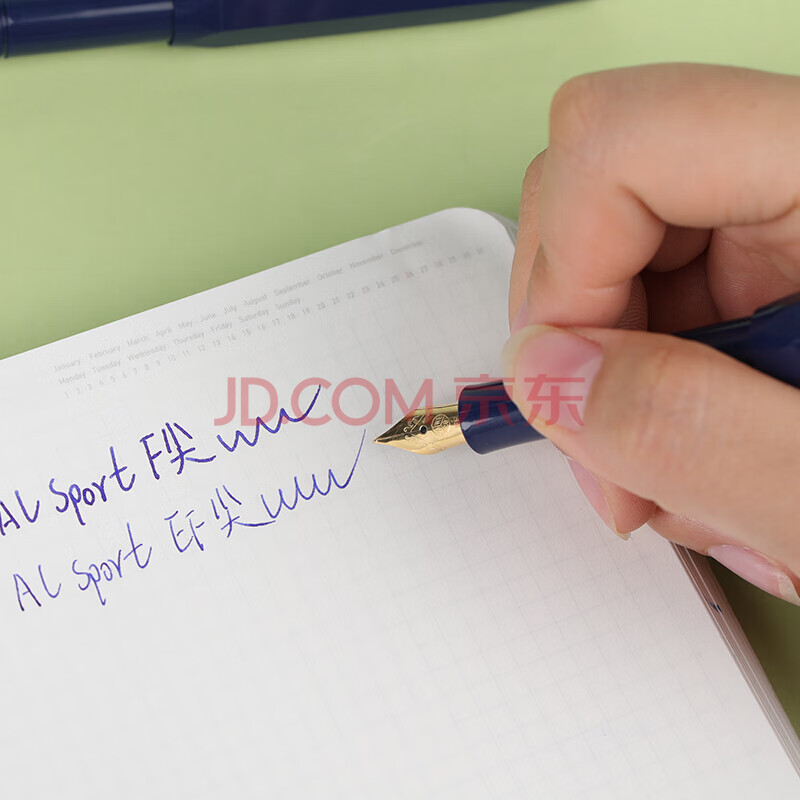 January February March April May June July August September October November December
Monday Tuesday Wednesday Thursday Friday Saturday Sunday
1 2 3 4 5 6 7 8 9 10 11 12 13 14 15 16 17 18 19 20 21 22 23 24 25 26 27 28 29 30 31
JD.COM 京东
AL Sport F尖
AL Sport EF尖